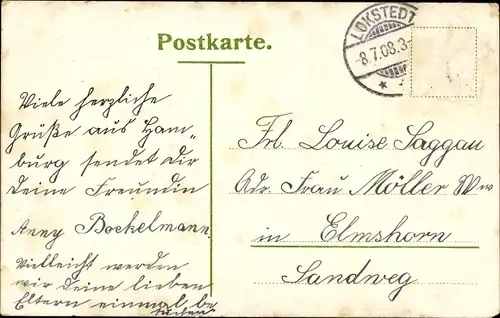 Postkarte.
LOKSTEDT
-8.7.08.3-
Viele herzliche
Grüße aus Ham„
burg sendet dir
Deine Freundin
Anny Bockelmann.
Vielleicht werden
wir Deine lieben
Eltern einmal be
suchen
Frl. Louise Saggau
Adr. Frau Möller Ww
in Elmshorn
Sandweg.